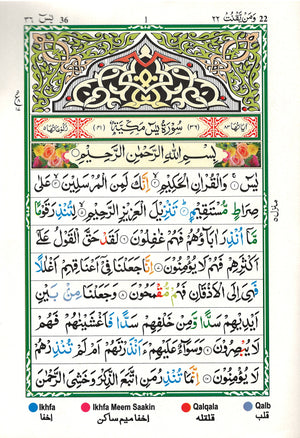 یٰسٓ 36 ٣٦ 1 ومن یقنت ٢٢ 22
اٰیاتها ٨٣ (٣٦) سُوْرَةُ يٰسٓ مَكِّيَّةٌ (٤١) رکوعاتها ٥
بِسْمِ اللّٰهِ الرَّحْمٰنِ الرَّحِيْمِ
يٰسٓ ۚ وَالْقُرْاٰنِ الْحَكِيْمِ ۙ اِنَّكَ لَمِنَ الْمُرْسَلِيْنَ ۙ عَلٰى
صِرَاطٍ مُّسْتَقِيْمٍ ؕ تَنْزِيْلَ الْعَزِيْزِ الرَّحِيْمِ ۙ لِتُنْذِرَ قَوْمًا
مَّاۤ اُنْذِرَ اٰبَآؤُهُمْ فَهُمْ غٰفِلُوْنَ لَقَدْ حَقَّ الْقَوْلُ عَلٰۤى
اَكْثَرِهِمْ فَهُمْ لَا يُؤْمِنُوْنَ اِنَّا جَعَلْنَا فِيْۤ اَعْنَاقِهِمْ اَغْلٰلًا
فَهِيَ اِلَى الْاَذْقَانِ فَهُمْ مُّقْمَحُوْنَ وَجَعَلْنَا مِنْۢ بَيْنِ
اَيْدِيْهِمْ سَدًّا وَّمِنْ خَلْفِهِمْ سَدًّا فَاَغْشَيْنٰهُمْ فَهُمْ
لَا يُبْصِرُوْنَ وَسَوَآءٌ عَلَيْهِمْ ءَاَنْذَرْتَهُمْ اَمْ لَمْ تُنْذِرْهُمْ
لَا يُؤْمِنُوْنَ اِنَّمَا تُنْذِرُ مَنِ اتَّبَعَ الذِّكْرَ وَخَشِيَ الرَّحْمٰنَ
منزل ٥
Ikhfa Ikhfa Meem Saakin Qalqala Qalb
اخفا اخفا میم ساکن قلقلہ قلب